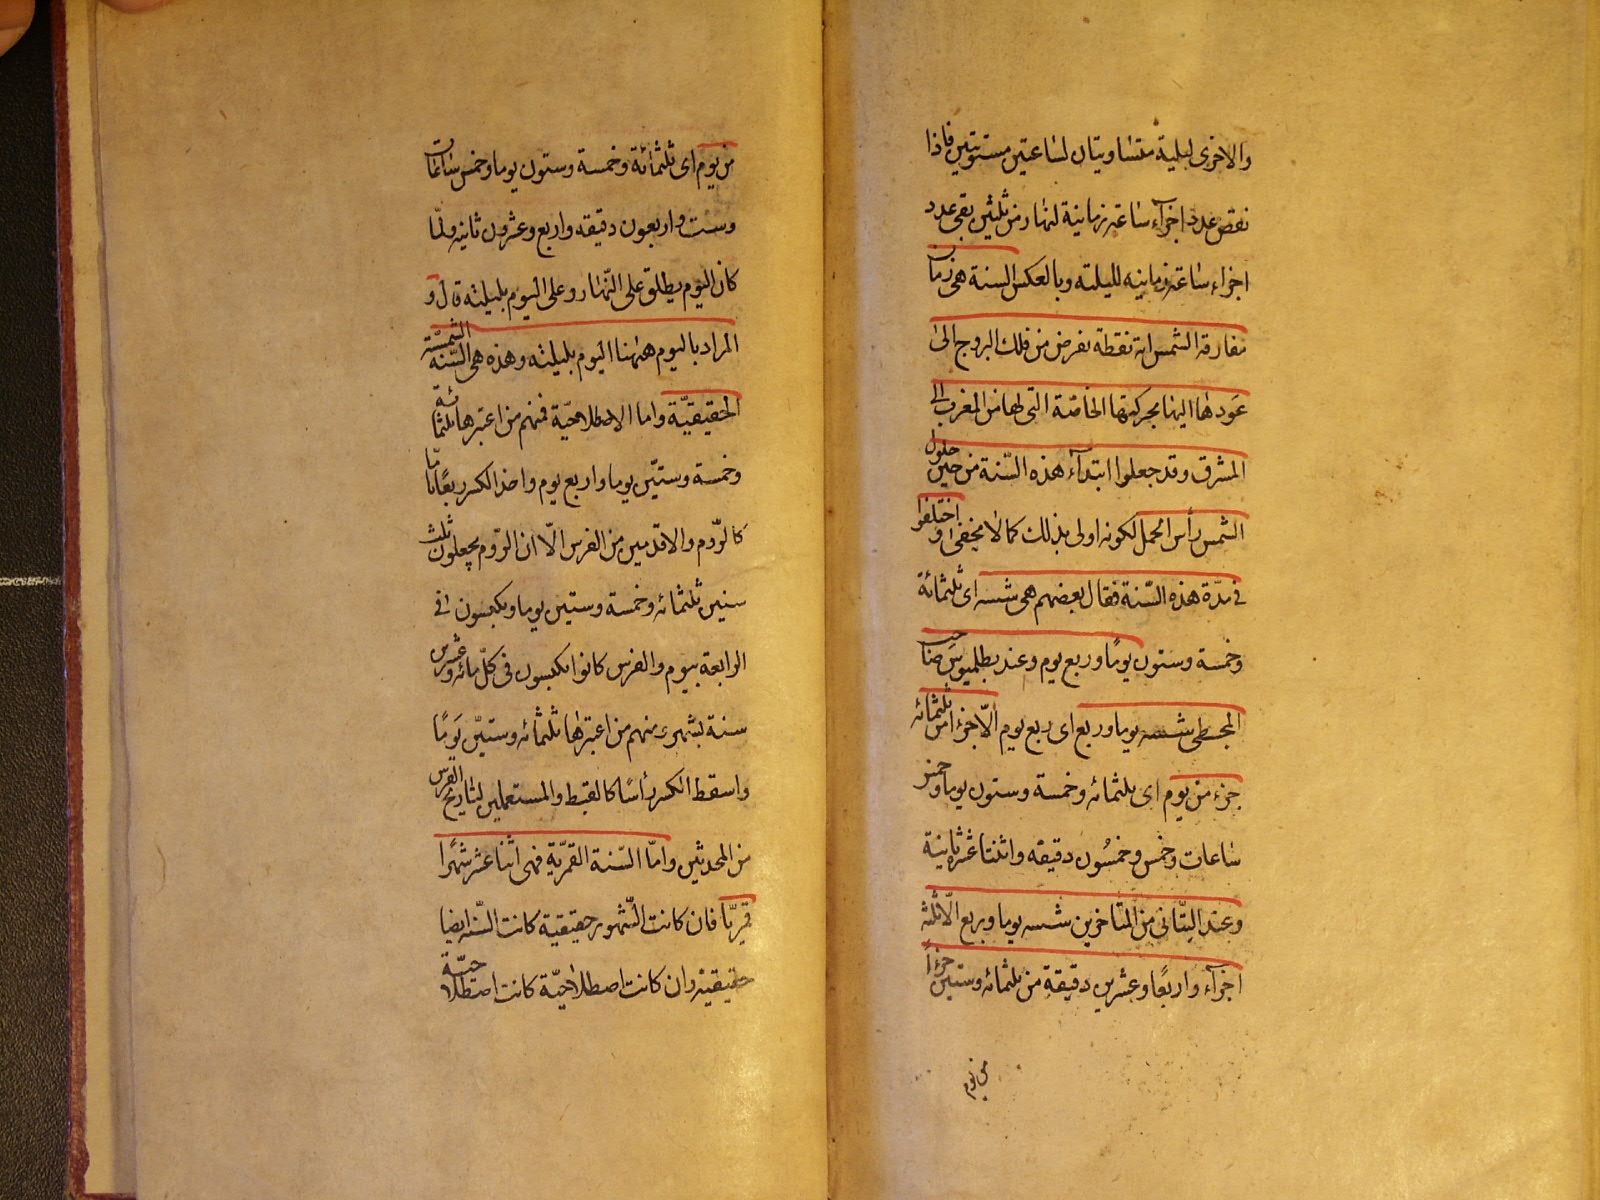 والاخرى ليلية متساويتان لساعتين مستويتين فاذا
نقص عدد اجزآء ساعة زمانية لنهار من ثلثين بقى عدد
اجزاء ساعة زمانيه لليلته وبالعكس السنة هى زمان
مفارقة الشمس اية نقطة تفرض من فلك البروج الى
عودها اليها بحركتها الخاصّة التى لها من المغرب الى
المشرق وقد جعلوا ابتدآء هذه السّنة من حين حلول
الشمس رأس الحمل لكونه اولى بذلك كما لا يخفى و اختلفوا
فى مدّة هذه السّنة فقال بعضهم هى شسه اى ثلثمائة
وخمسة وستون يومًا وربع يوم وعند بطلميوس صاحب
المجسطى شسه يوما وربع اى ربع يوم الّا جزءًا من ثلثمائه
جزء من يوم اى ثلثمائه وخمسة وستون يوما وخمس
ساعات وخمس وخمسُون دقيقه واثنتا عشرة ثانية
وعند البتّانى من المتاخرين شسه يوما وربع الّا ثلثة
اجزآء واربعًا وعشرين دقيقةٍ من ثلثمائه وستين جزءاً
من يوم
من يوم اى ثلثمائة وخمسة وستون يوما وخمس ساعات
وست واربعون دقيقه واربع وعشرون ثانيه ولمّا
كان اليوم يطلق على النّهار وعلى اليوم بليلته قال و
المراد باليوم ههنا اليوم بليلته وهذه هى السّنة الشمسيّة
الحقيقيّة واما الاصطلاحيّة فمنهم من اعتبرها ثلثمائة
وخمسة وستّين يوما واربع يوم واخذ الكسر ربعًا تامّا
كالرّوم والاقدمين من الفرس الّا ان الرّوم يجعلون ثلث
سنين ثلثمائه وخمسة وستين يوما ويكبسون فى
الرابعة بيوم والفرس كانوا يكبسون فى كلّ مائه وعشرين
سنة بشهر ومنهم من اعتبرها ثلثمائه وستيّن يَومًا
واسقط الكسر رأسًا كالقبط والمستعملين لتاريخ الفرس
من المحدثين وامّا السّنة القمريّة فهى اثنا عشر شهرًا
قمريّا فان كانت الشّهور حقيقية كانت السّنه ايضا
حقيقيّة وان كانت اصطلاحيّة كانت اصطلاحيّة